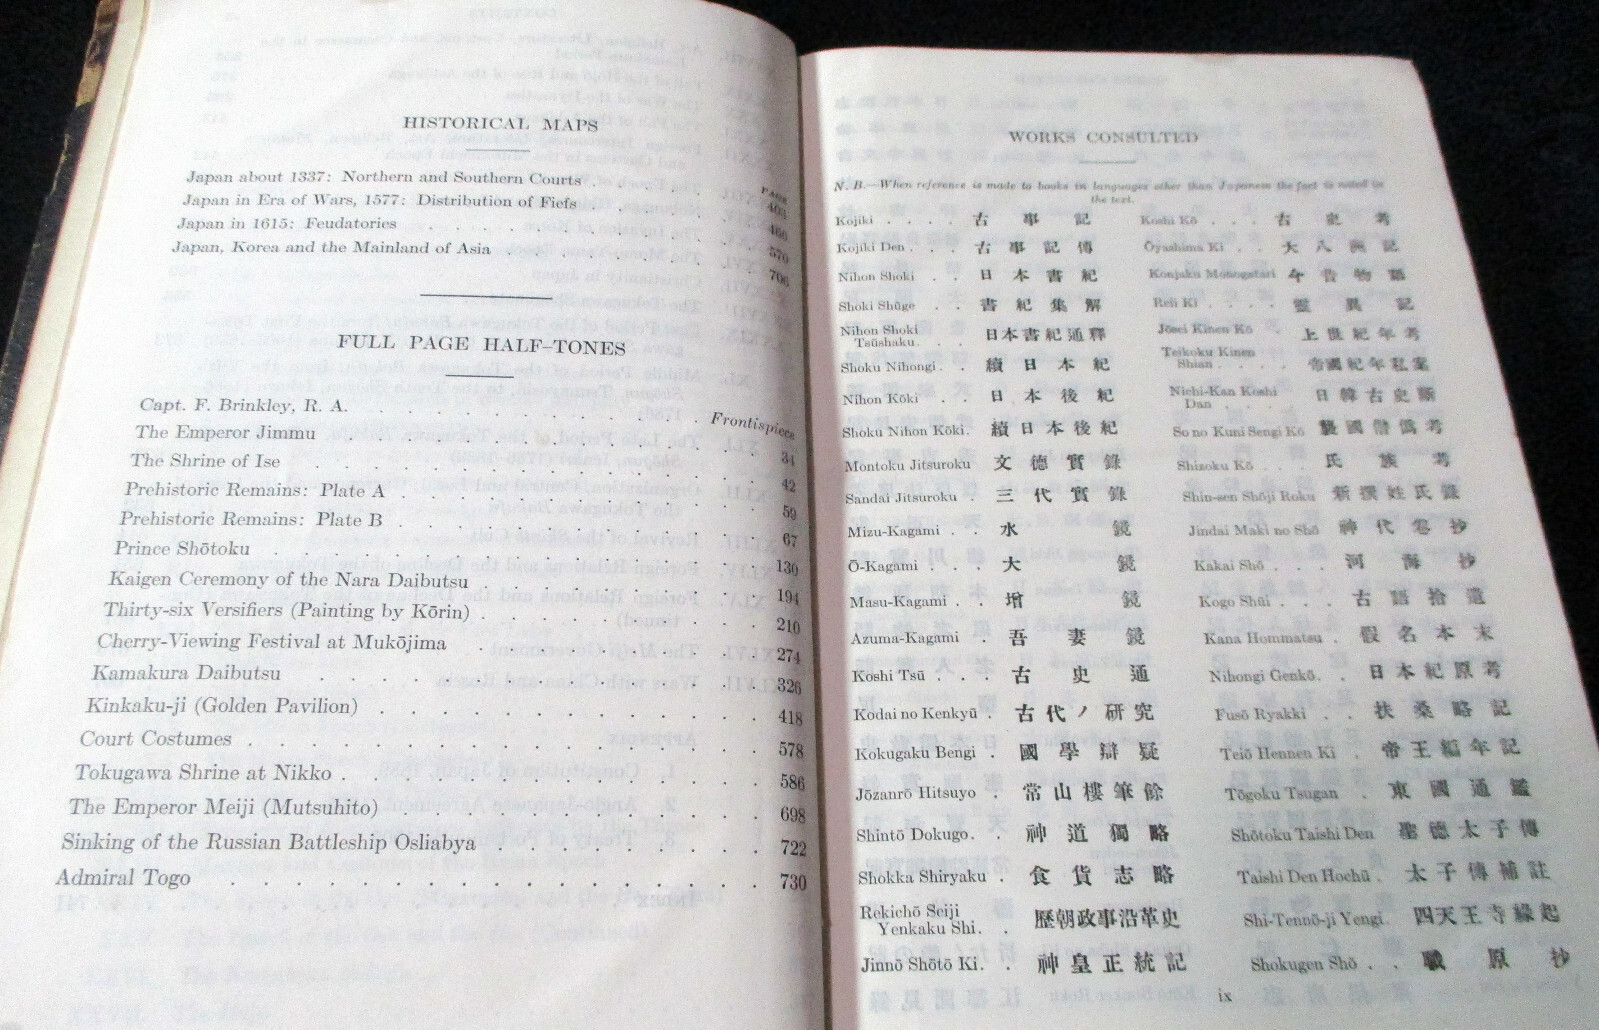 HISTORICAL MAPS
PAGE
Japan about 1337: Northern and Southern Courts . . . . . 403
Japan in Era of Wars, 1577: Distribution of Fiefs . . . . . 466
Japan in 1615: Feudatories . . . . . 570
Japan, Korea and the Mainland of Asia . . . . . 706
FULL PAGE HALF-TONES
Capt. F. Brinkley, R. A. . . . . . Frontispiece
The Emperor Jimmu . . . . . 34
The Shrine of Ise . . . . . 42
Prehistoric Remains: Plate A . . . . . 59
Prehistoric Remains: Plate B . . . . . 67
Prince Shōtoku . . . . . 130
Kaigen Ceremony of the Nara Daibutsu . . . . . 194
Thirty-six Versifiers (Painting by Kōrin) . . . . . 210
Cherry-Viewing Festival at Mukōjima . . . . . 274
Kamakura Daibutsu . . . . . 326
Kinkaku-ji (Golden Pavilion) . . . . . 418
Court Costumes . . . . . 578
Tokugawa Shrine at Nikko . . . . . 586
The Emperor Meiji (Mutsuhito) . . . . . 698
Sinking of the Russian Battleship Osliabya . . . . . 722
Admiral Togo . . . . . 730
WORKS CONSULTED
N. B.—When reference is made to books in languages other than Japanese the fact is noted in
the text.
Kojiki . . . . 古事記
Kojiki Den . . . 古事記傳
Nihon Shoki . . 日本書紀
Shoki Shūge . . 書紀集解
Nihon Shoki
Tsūshaku . . . 日本書紀通釋
Shoku Nihongi . . 續日本紀
Nihon Kōki . . 日本後紀
Shoku Nihon Kōki. 續日本後紀
Montoku Jitsuroku 文德實錄
Sandai Jitsuroku . 三代實錄
Mizu-Kagami . . 水鏡
Ō-Kagami . . . 大鏡
Masu-Kagami . . 增鏡
Azuma-Kagami . 吾妻鏡
Koshi Tsū . . . . 古史通
Kodai no Kenkyū . 古代ノ研究
Kokugaku Bengi . 國學辯疑
Jōzanrō Hitsuyo . 常山樓筆餘
Shintō Dokugo. . 神道獨略
Shokka Shiryaku . 食貨志略
Rekichō Seiji
Yenkaku Shi. . 歷朝政事沿革史
Jinnō Shōtō Ki. . 神皇正統記
Koshi Kō . . . . 古史考
Ōyashima Ki . . 大八洲記
Konjaku Monogatari 今昔物語
Reii Ki . . . . 靈異記
Jōsei Kinen Kō 上世紀年考
Teikoku Kinen
Shian . . . . 帝國紀年私案
Nichi-Kan Koshi
Dan . . . . 日韓古史斷
So no Kuni Sengi Kō 國僭僞考
Shizoku Kō . . . 氏族考
Shin-sen Shōji Roku 新撰姓氏錄
Jindai Maki no Shō 神代卷抄
Kakai Shō . . . 河海抄
Kogo Shūi . . . 古語拾遺
Kana Hommatsu . 假名本末
Nihongi Genkō. . 日本紀原考
Fusō Ryakki . . 扶桑略記
Teiō Hennen Ki . 帝王編年記
Tōgoku Tsugan . 東國通鑑
Shōtoku Taishi Den 聖德太子傳
Taishi Den Hochū . 太子傳補註
Shi-Tennō-ji Yengi . 四天王寺緣起
Shokugen Shō . . 職原抄
ix